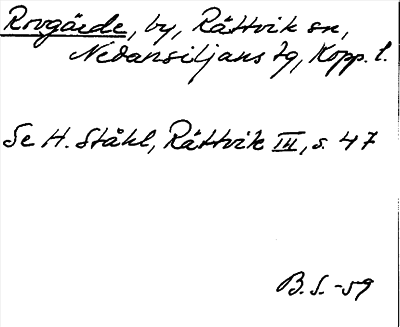 Rovgärde, by, Rättvik sn,
Nedansiljans tg, Kopp. l.
Se H. Ståhl, Rättvik III, s. 47
B.S. -59